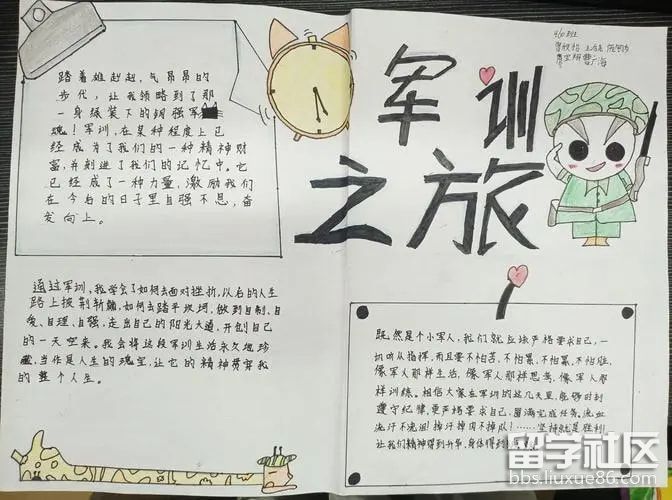 军训
之旅
踏着雄赳赳,气昂昂的
步代,让我领略到了那
一身绿装下的钢强军
魂!军训,在某种程度上已
经成为了我们的一种精神财
富,并刻进了我们的记忆中。它
已经成了一种力量,激励我们
在今后的日子里自强不息,奋
发向上。
通过军训,我学会了如何去面对挫折,以后的人生
路上披荆斩棘,如何去踏平坎坷,做到自制、自
爱、自理、自强,走出自己的阳光大道,开创自己
的一天空来。我会将这段军训生活永久地珍
藏,当作是人生的瑰宝,让它的精神贯穿我
的整个人生。
既然是个小军人,我们就应该严格要求自己,一
切听从指挥,而且要不怕苦、不怕累、不怕
像军人那样生活,像军人那样思考,像军人那
样训练。相信大家在军训的这几天里,能够时刻
遵守纪律,更严格要求自己,圆满完成任务。流血
流汗不流泪!掉汗掉肉不掉队!……坚持就是胜利
让我们精神得到升华,身体得到
留学社区
bbs.liuxue86.com